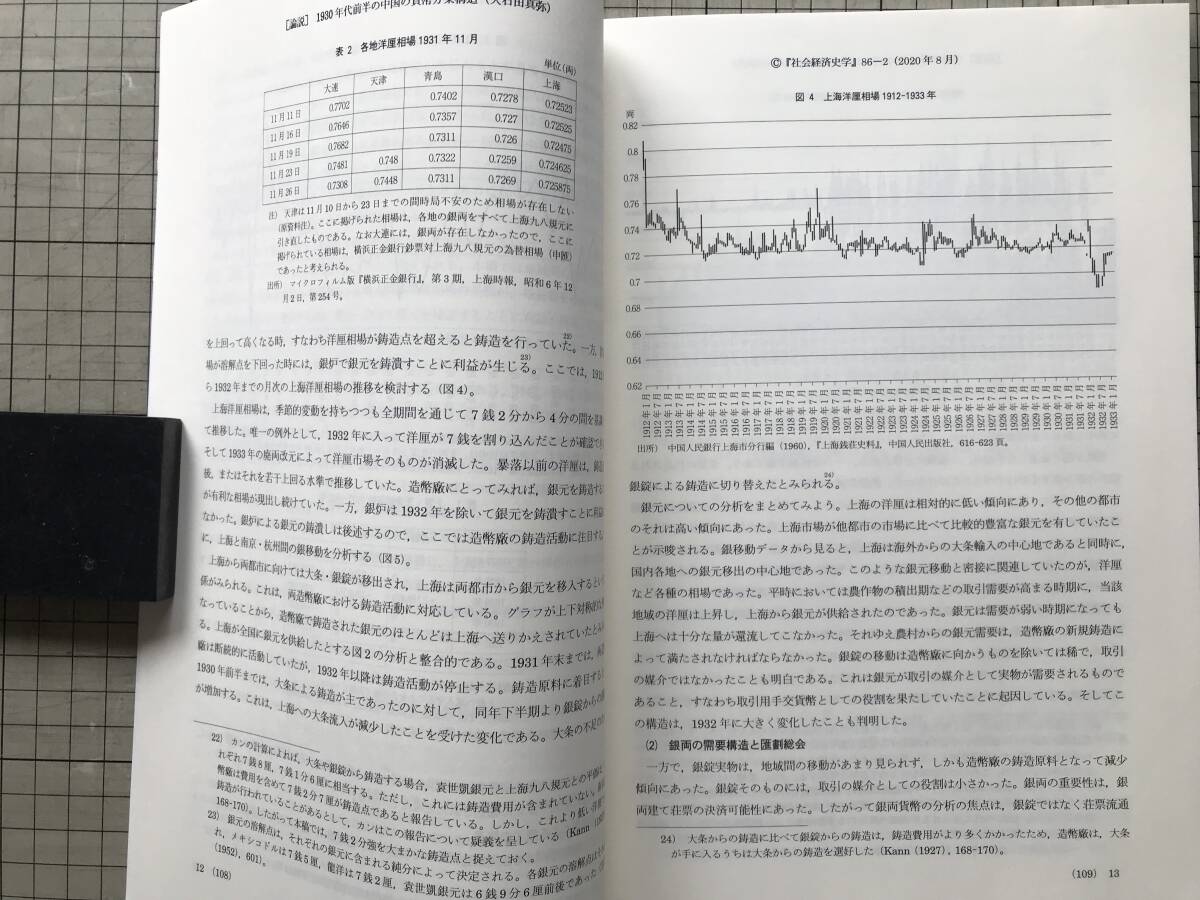 [論説] 1930年代前半の中国の貨幣分業構造
表2 各地洋厘相場1931年11月
単位(両)
大連 天津 青島 漢口 上海
11月11日 0.7702 0.7402 0.7278 0.72523
11月16日 0.7646 0.7357 0.727 0.72525
11月19日 0.7682 0.7311 0.726 0.72475
11月23日 0.7481 0.748 0.7322 0.7259 0.724625
11月26日 0.7308 0.7448 0.7311 0.7269 0.725875
注) 天津は11月10日から23日までの間時局不安のため相場が存在しない
(原資料注)。ここに掲げられた相場は，各地の銀両をすべて上海九八規元に
引き直したものである。なお大連には，銀両が存在しなかったので，ここに
掲げられている相場は，横浜正金銀行鈔票対上海九八規元の為替相場（申匯）
であったと考えられる。
出所) マイクロフィルム版『横浜正金銀行』，第3期，上海時報，昭和6年12
月2日，第254号。
を上回って高くなる時，すなわち洋厘相場が鋳造点を超えると鋳造を行っていた22)。一方，
場が溶解点を下回った時には，銀炉で銀元を鋳潰すことに利益が生じる23)。ここでは，1912
ら1932年までの月次の上海洋厘相場の推移を検討する（図4）。
上海洋厘相場は，季節的変動を持ちつつも全期間を通じて7銭2分から4分の間を
て推移した。唯一の例外として，1932年に入って洋厘が7銭を割り込んだことが確認で
そして1933年の廃両改元によって洋厘市場そのものが消滅した。暴落以前の洋厘は，
後，またはそれを若干上回る水準で推移していた。造幣廠にとってみれば，銀元を鋳造する
が有利な相場が現出し続けていた。一方，銀炉は1932年を除いて銀元を鋳潰すことに利益
なかった。銀炉による銀元の鋳潰しは後述するので，ここでは造幣廠の鋳造活動に注目す
に，上海と南京・杭州間の銀移動を分析する（図5）。
上海から両都市に向けては大条・銀錠が移出され，上海は両都市から銀元を移入すると
係がみられる。これは，両造幣廠における鋳造活動に対応している。グラフが上下対称
なっていることから，造幣廠で鋳造された銀元のほとんどは上海へ送りかえされていたとみ
る。上海が全国に銀元を供給したとする図2の分析と整合的である。1931年末までは，
廠は断続的に活動していたが，1932年以降は鋳造活動が停止する。鋳造原料に着目する
1930年前半までは，大条による鋳造が主であったのに対して，同年下半期より銀錠からの
が増加する。これは，上海への大条流入が減少したことを受けた変化である。大条の不足
22) カンの計算によれば，大条や銀錠から鋳造する場合，袁世凱銀元と上海九八規元との平価は
れぞれ7銭8厘，7銭1分6厘に相当する。ただし，これには鋳造費用が含まれていない。
幣廠は費用を含めて7銭2分7厘が鋳造点であると報告している。しかし，これより低い洋厘で
鋳造が行われていることがあるとして，カンはこの報告について疑義を呈している（Kann
168-170）。したがって本稿では，7銭2分強を大まかな鋳造点と捉えておく。
23) 銀元の溶解点は，それぞれの銀元に含まれる純分によって決定される。各銀元の溶解点は
れ，メキシコドルは7銭5厘，龍洋は7銭2厘，袁世凱銀元は6銭9分6厘前後であった
(1952)，601)。
12 (108)
©『社会経済史学』86―2（2020年8月）
図4 上海洋厘相場1912-1933年
両
0.82
0.8
0.78
0.76
0.74
0.72
0.7
0.68
0.66
0.64
0.62
1912年1月 1912年7月 1913年1月 1914年1月 1914年7月 1915年1月
出所) 中国人民銀行上海市分行編（1960），『上海銭荘史料』，中国人民出版社，616-623頁。
銀錠による鋳造に切り替えたとみられる24)。
銀元についての分析をまとめてみよう。上海の洋厘は相対的に低い傾向にあり，その他の都市
のそれは高い傾向にあった。上海市場が他都市の市場に比べて比較的豊富な銀元を有していたこ
とが示唆される。銀移動データから見ると，上海は海外からの大条輸入の中心地であると同時に，
国内各地への銀元移出の中心地であった。このような銀元移動と密接に関連していたのが，洋厘
など各種の相場であった。平時においては農作物の積出期などの取引需要が高まる時期に，当該
地域の洋厘は上昇し，上海から銀元が供給されたのであった。銀元は需要が弱い時期になっても
上海へは十分な量が還流してこなかった。それゆえ農村からの銀元需要は，造幣廠の新規鋳造に
よって満たされなければならなかった。銀錠の移動は造幣廠に向かうものを除いては稀で，取引
の媒介ではなかったことも明白である。これは銀元が取引の媒介として実物が需要されるもので
あること，すなわち取引用手交貨幣としての役割を果たしていたことに起因している。そしてこ
の構造は，1932年に大きく変化したことも判明した。
(2) 銀両の需要構造と匯劃総会
一方で，銀錠実物は，地域間の移動があまり見られず，しかも造幣廠の鋳造原料となって減少
傾向にあった。銀錠そのものには，取引の媒介としての役割は小さかった。銀両の重要性は，銀
両建て荘票の決済可能性にあった。したがって銀両貨幣の分析の焦点は，銀錠ではなく荘票流通
24) 大条からの鋳造に比べて銀錠からの鋳造は，鋳造費用がより多くかかったため，造幣廠は，大条
が手に入るうちは大条からの鋳造を選好した（Kann（1927），168-170）。
(109) 13